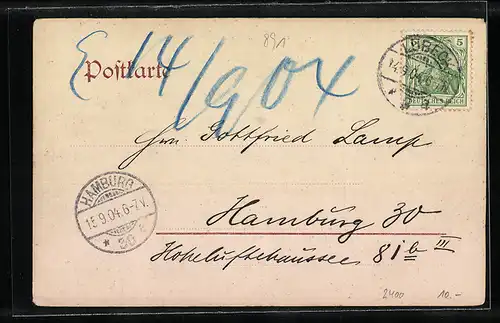 891
E 14/9 04
Postkarte
LÜBECK
14.9.04.6-
5
DEUTSCHES REICH
Hrn. Gottfried Lamp
HAMBURG
15.9.04.6-7V.
* 30 c
Hamburg 30
Hoheluftchaussee 81 b III
2400 10.-